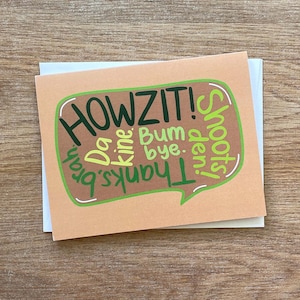 HOWZIT!
Shoots
den!
Da
kine.
Bum
bye.
Thanks, brah